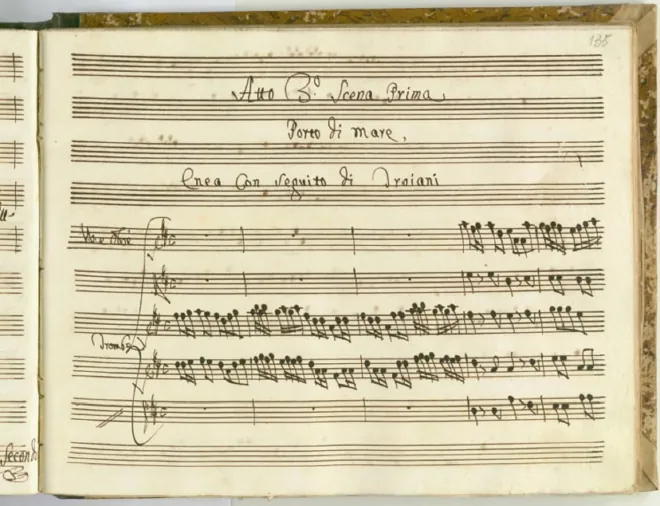 135
Atto 3º. Scena Prima
Porto di mare,
Enea Con Seguito di Troiani
Trombe
Second